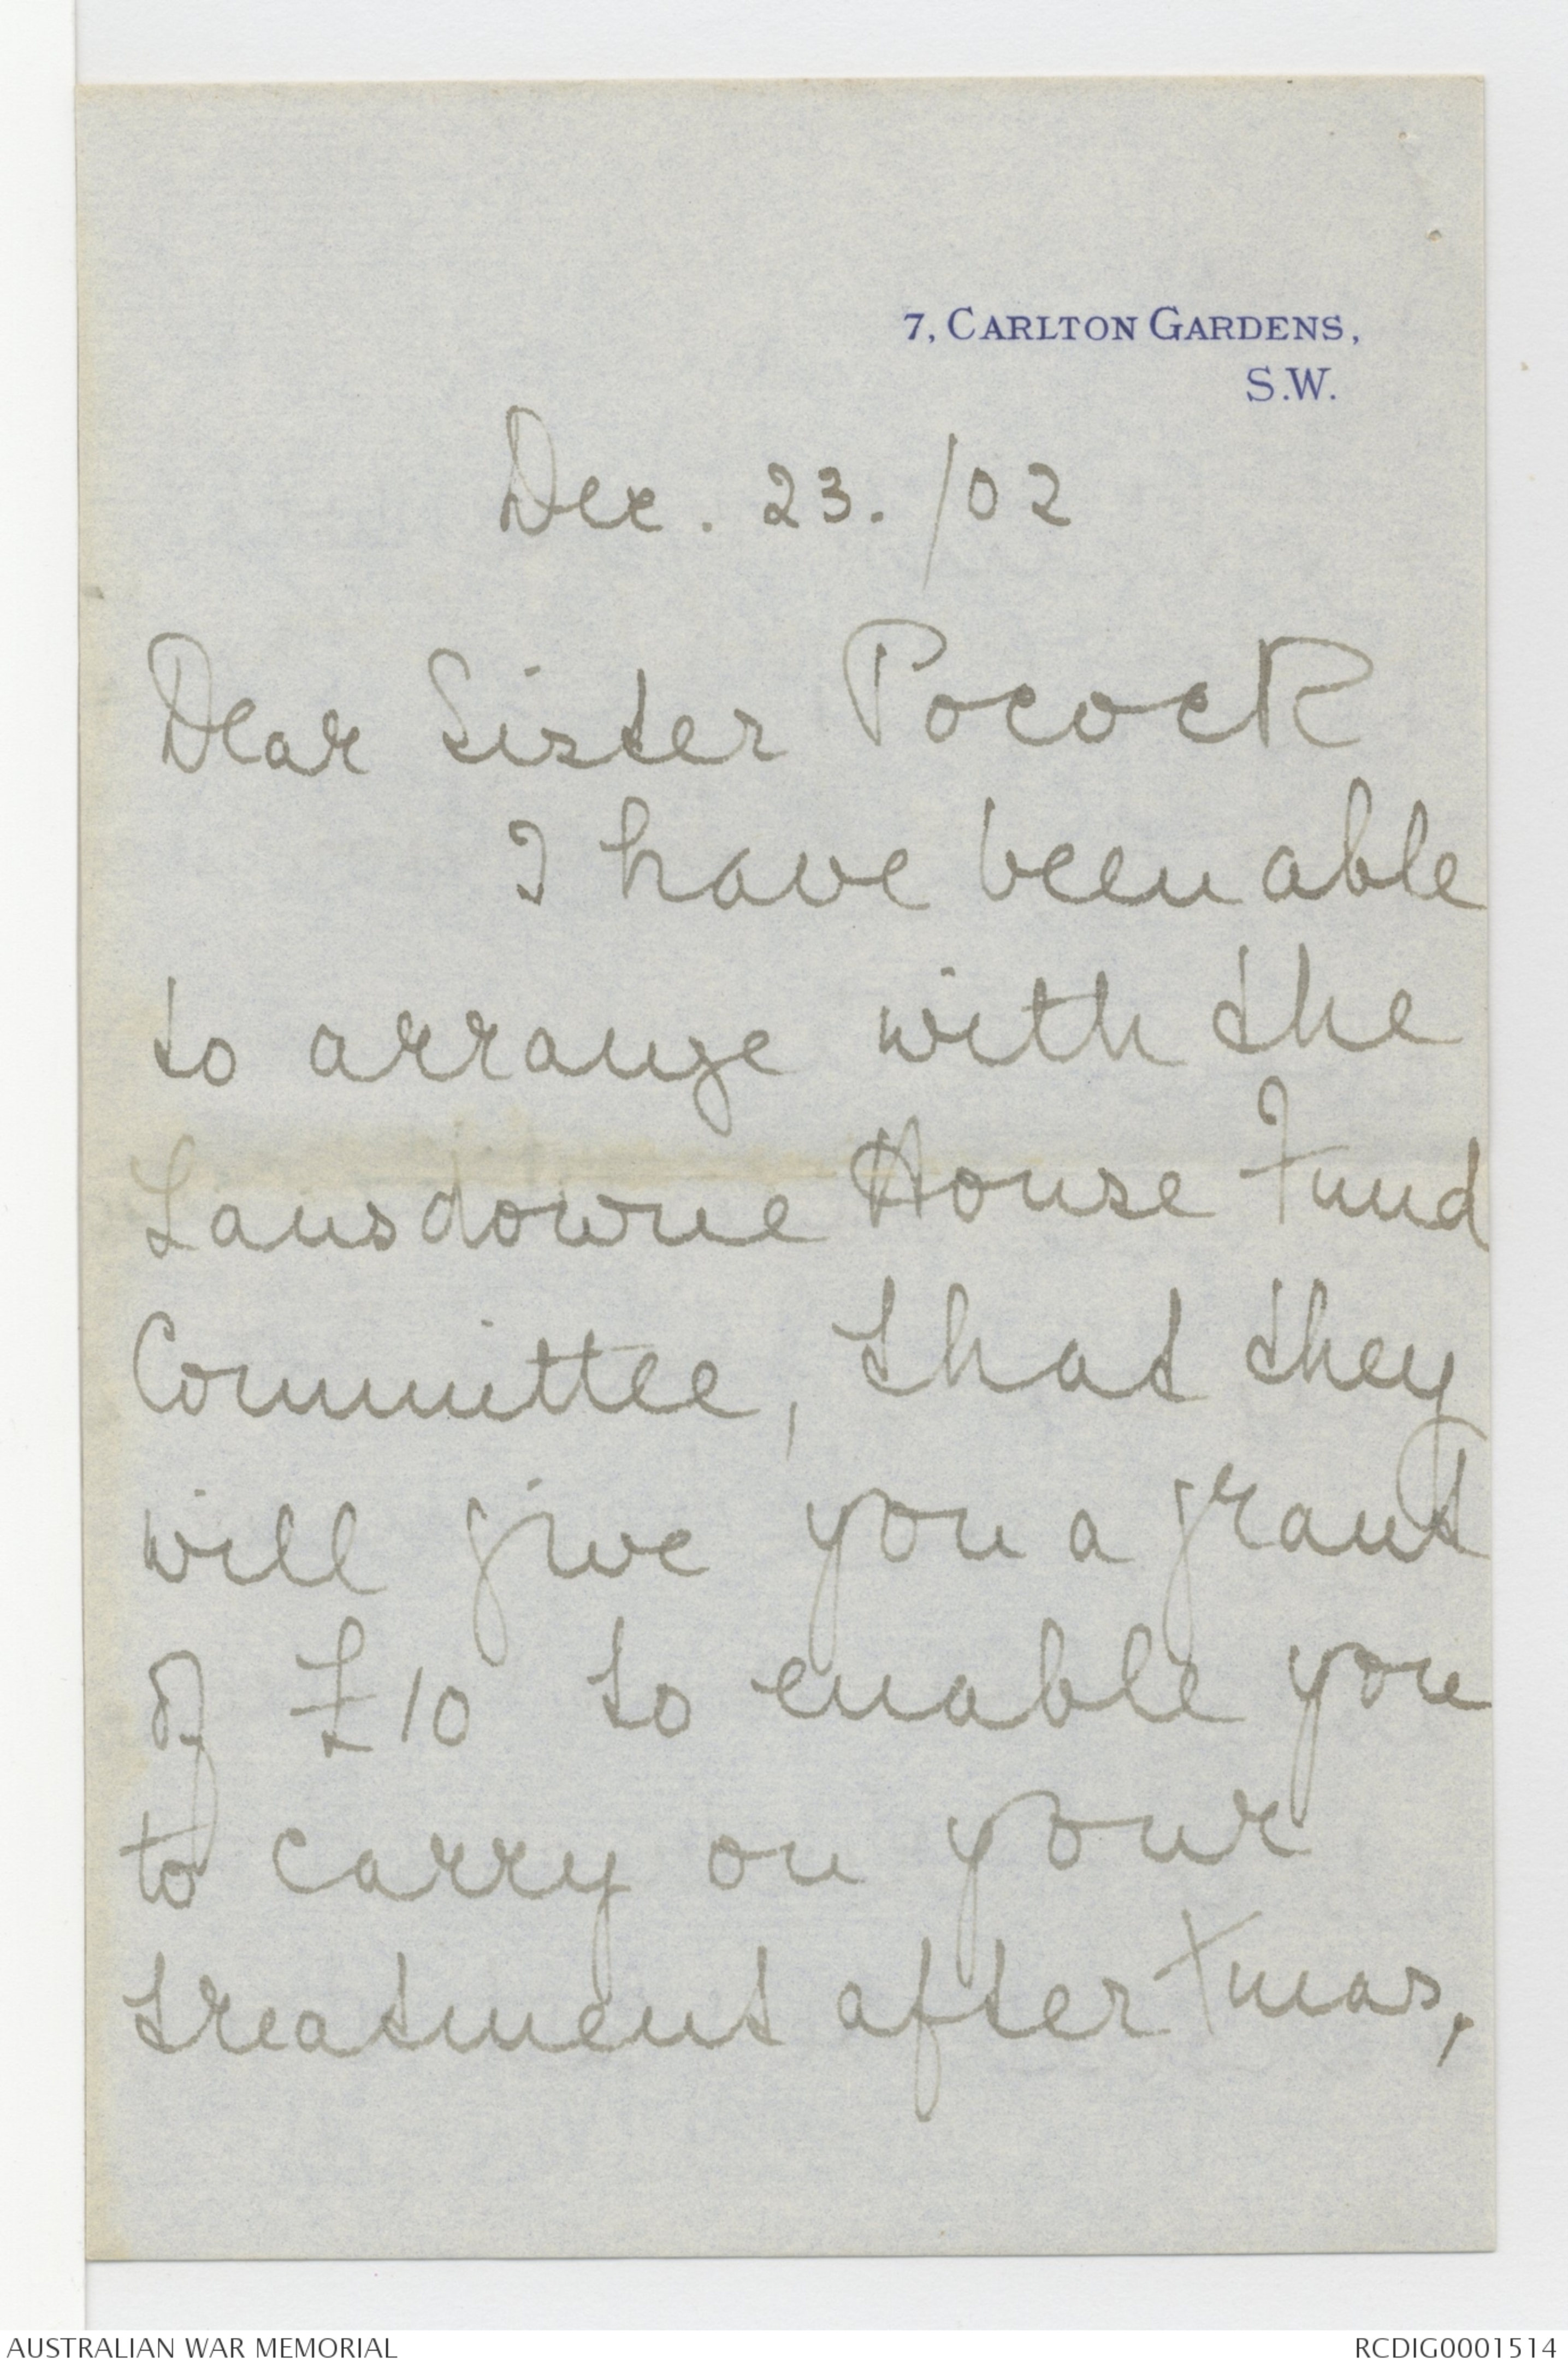 7, CARLTON GARDENS,
S.W.
Dec. 23. /02
Dear Sister Pocock
I have been able
to arrange with the
Lansdowne House Fund
Committee, that they
will give you a grant
of £10 to enable you
to carry on your
treatment after Xmas,
AUSTRALIAN WAR MEMORIAL
RCDIG0001514